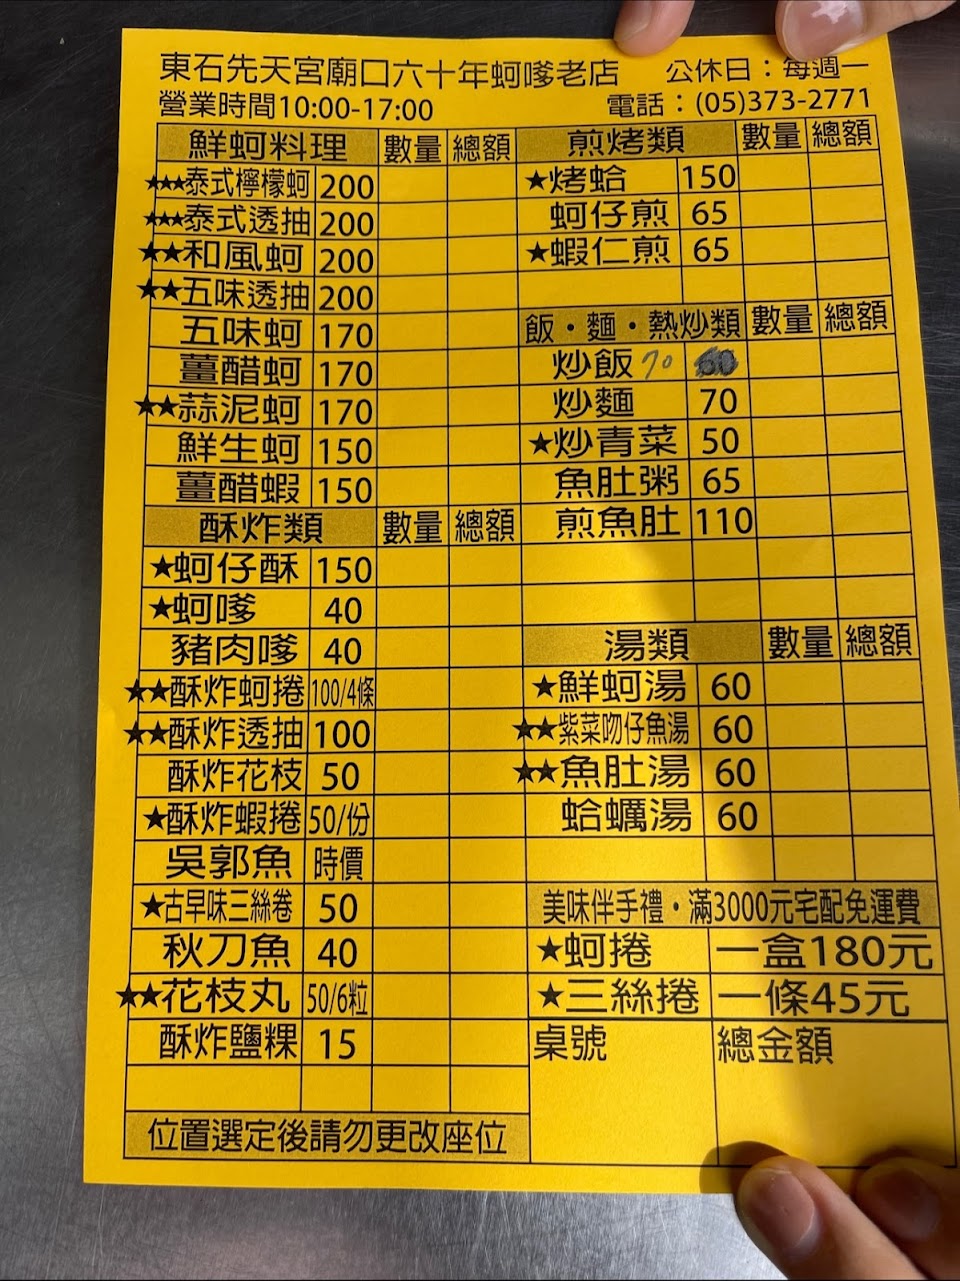 東石先天宮廟口六十年蚵嗲老店 公休日：每週一
營業時間10:00-17:00 電話：(05)373-2771
鮮蚵料理 數量 總額
★★★泰式檸檬蚵 200
★★★泰式透抽 200
★★和風蚵 200
★★五味透抽 200
五味蚵 170
薑醋蚵 170
★★蒜泥蚵 170
鮮生蚵 150
薑醋蝦 150
酥炸類 數量 總額
★蚵仔酥 150
★蚵嗲 40
豬肉嗲 40
★★酥炸蚵捲 100/4條
★★酥炸透抽 100
酥炸花枝 50
★酥炸蝦捲 50/份
吳郭魚 時價
★古早味三絲卷 50
秋刀魚 40
★★花枝丸 50/6粒
酥炸鹽粿 15
位置選定後請勿更改座位
煎烤類 數量 總額
★烤蛤 150
蚵仔煎 65
★蝦仁煎 65
飯・麵・熱炒類 數量 總額
炒飯 70
炒麵 70
★炒青菜 50
魚肚粥 65
煎魚肚 110
湯類 數量 總額
★鮮蚵湯 60
★★紫菜吻仔魚湯 60
★★魚肚湯 60
蛤蠣湯 60
美味伴手禮・滿3000元宅配免運費
★蚵捲 一盒180元
★三絲捲 一條45元
桌號 總金額